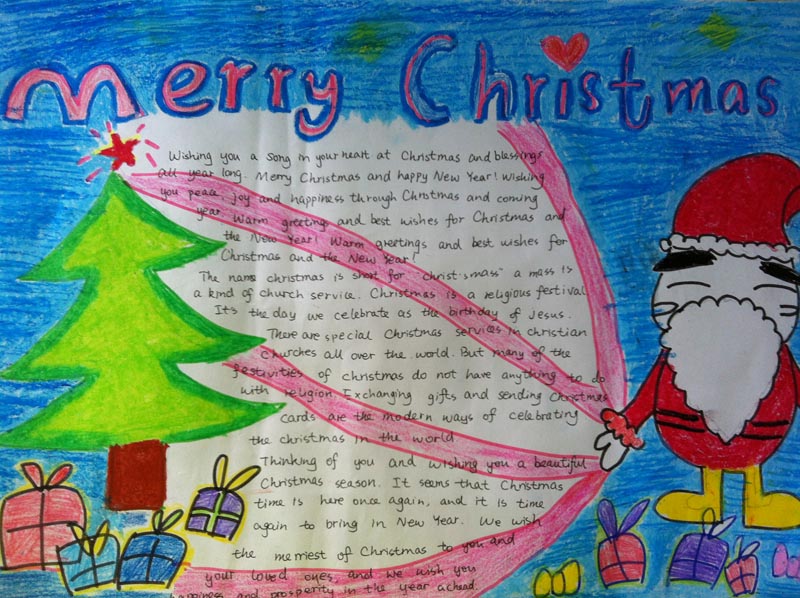 Merry Christmas
Wishing you a song in your heart at Christmas and blessings
all year long. Merry Christmas and happy New Year! Wishing
you peace, joy and happiness through Christmas and coming
year. Warm greetings and best wishes for Christmas and
the New Year! Warm greetings and best wishes for
Christmas and the New Year!
The name christmas is short for "christ's mass" a mass is
a kind of church service. Christmas is a religious festival
It's the day we celebrate as the birthday of Jesus.
There are special Christmas services in christian
Churches all over the world. But many of the
festivities of christmas do not have anything to do
with religion. Exchanging gifts and sending Christmas
cards are the modern ways of celebrating
the christmas in the world
Thinking of you and wishing you a beautiful
Christmas season. It seems that Christmas
time is here once again, and it is time
again to bring in New Year. We wish
the merriest of Christmas to you and
your loved ones, and we wish you
happiness and prosperity in the year ahead.